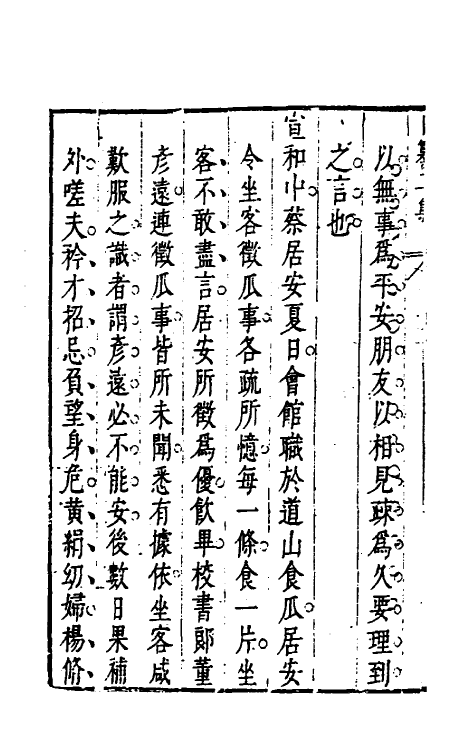 以無事爲平安朋友以相見踈爲久要理到
之言也
宣和中蔡居安夏日會館職於道山食瓜居安
令坐客徵瓜事各疏所憶每一條食一片坐
客不敢盡言居安所徵爲優飲畢校書郎董
彦遠連徵瓜事皆所未聞悉有據依坐客咸
歎服之識者謂彦遠必不能安後數日果補
外嗟夫矜才招忌負望身危黄絹幼婦楊脩